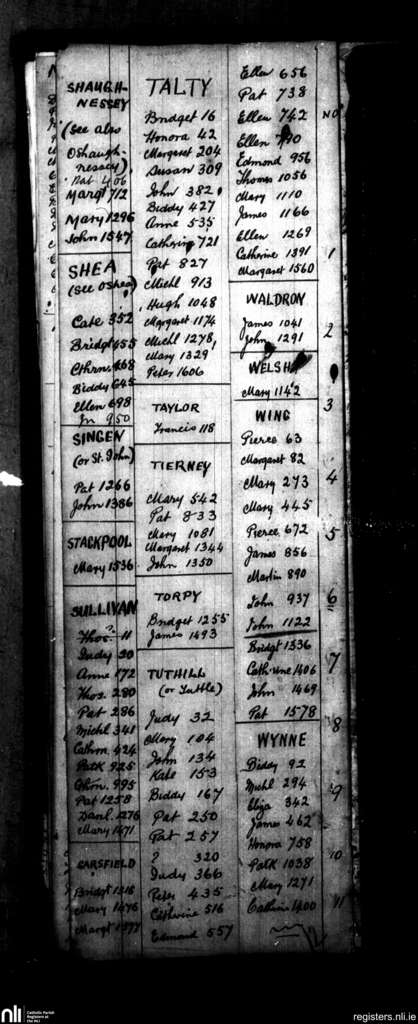 SHAUGH-
NESSEY
(see also
Oshaugh-
nessey)
Pat 406
Margt 712
Mary 1296
John 1547
SHEA
(see Oshea)
Cate 352
Bridgt 455
Cthrn. 468
Biddy 645
Ellen 698
Jn 950
SINGEN
(or St. John)
Pat 1266
John 1386
STACKPOOL
Mary 1536
SULLIVAN
Thos. 11
Judy 20
Anne 172
Thos. 280
Pat 286
Michl 341
Cathrn 424
Patk 925
Cthrn. 995
Pat 1258
Danl. 1276
Mary 1471
SARSFIELD
Bridgt 1316
Mary 1476
Margt
TALTY
Bridget 16
Honora 42
Margaret 204
Susan 309
John 382
Biddy 427
Anne 535
Catherine 721
Pat 827
Michl 913
Hugh 1048
Margaret 1174
Michl 1278
Mary 1329
Peter 1606
TAYLOR
Francis 118
TIERNEY
Mary 542
Pat 833
Mary 1081
Margaret 1344
John 1350
TORPY
Bridget 1255
James 1493
TUTHILL
(or Tuttle)
Judy 32
Mary 104
John 134
Kate 153
Biddy 167
Pat 250
Pat 257
? 320
Judy 366
Peter 435
Catherine 516
Edmond 557
Ellen 656
Pat 738
Ellen 742
Ellen
Edmond 956
Thomas 1056
Mary 1110
James 1166
Ellen 1269
Catherine 1391
Margaret 1560
WALDRON
James 1041
John 1291
WELSH
Mary 1142
WING
Pierce 63
Margaret 82
Mary 273
Mary 445
Pierce 672
James 856
Martin 890
John 937
John 1122
Bridgt 1336
Cath-erine 1406
John 1469
Pat 1578
WYNNE
Biddy 92
Michl 294
Eliza 342
James 462
Honora 758
Patk 1038
Mary 1271
Cathrin 1400
No
1
2
3
4
5
6
7
8
9
10
11
nli
Catholic Parish
Registers at
the NLI
registers.nli.ie